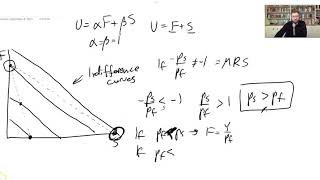 U = αF + βS
α = β = 1
U = F + S
F
Indifference curves
If -ps/pf ≠ -1 = MRS
-ps/pf < -1
ps/pf > 1
ps > pf
If pf < ps → F = Y/pf
If pf <
S